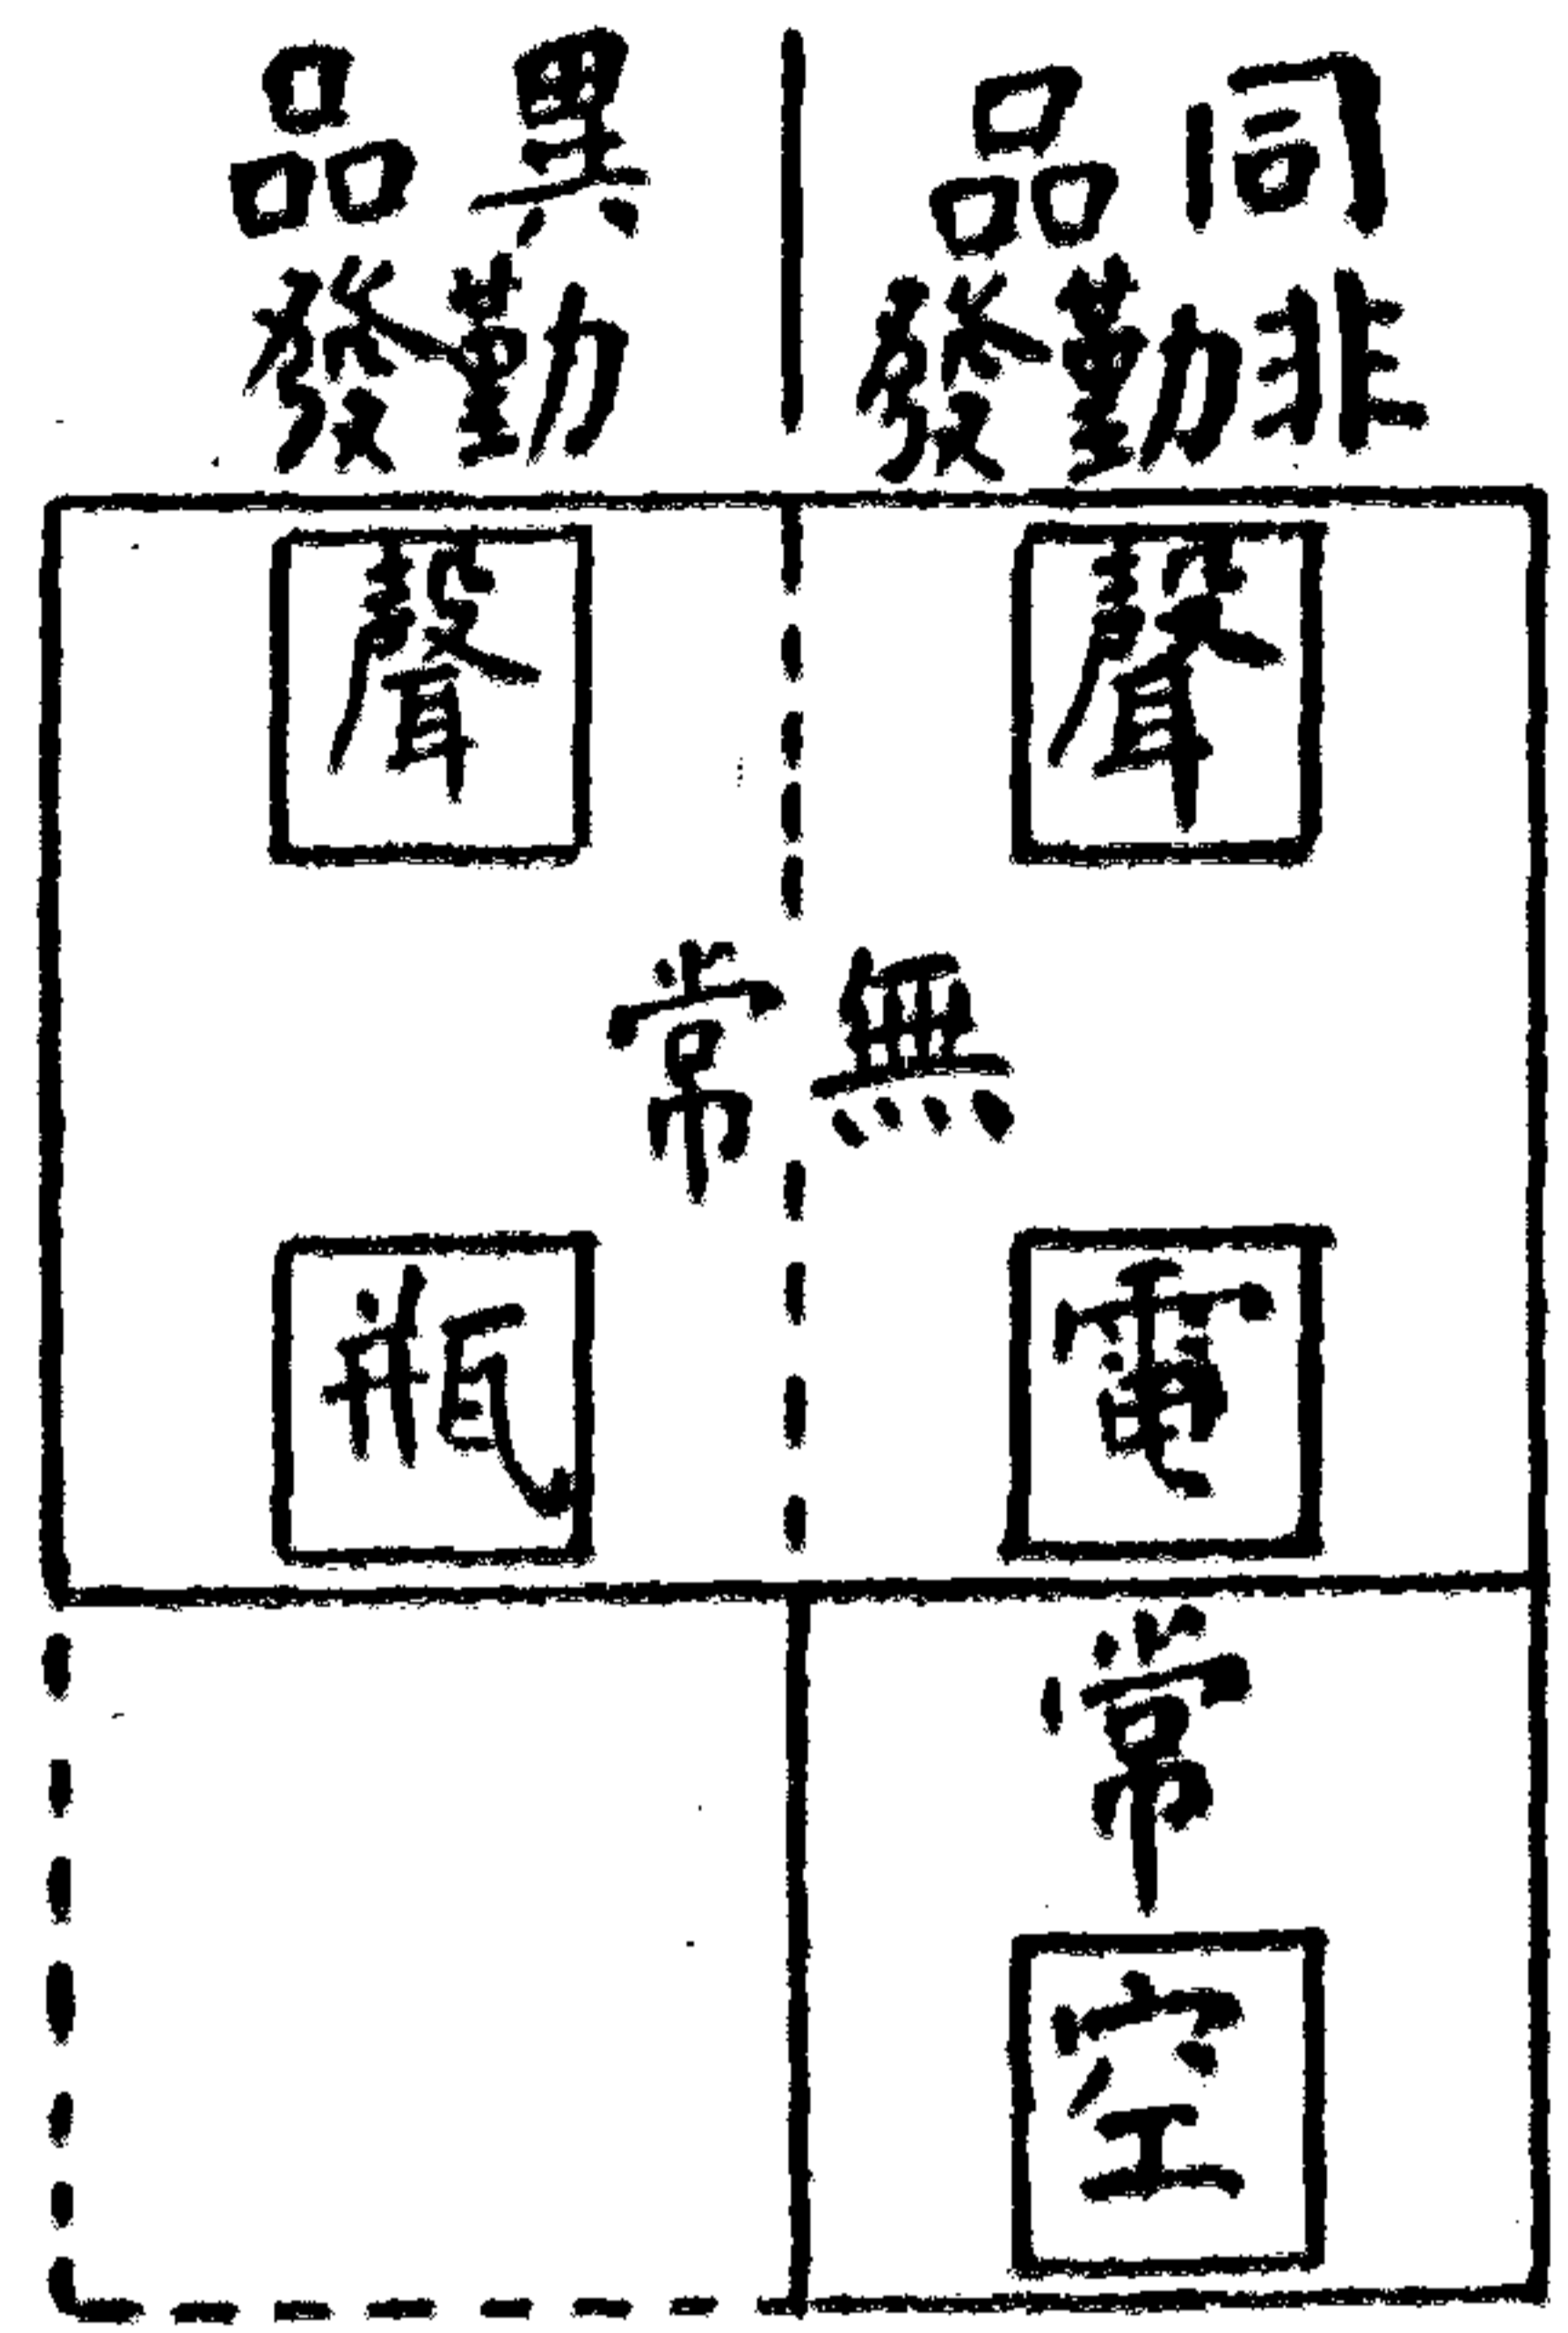 同品
非勤發
異品
勤發
聲
聲
無常
電
瓶
常
空